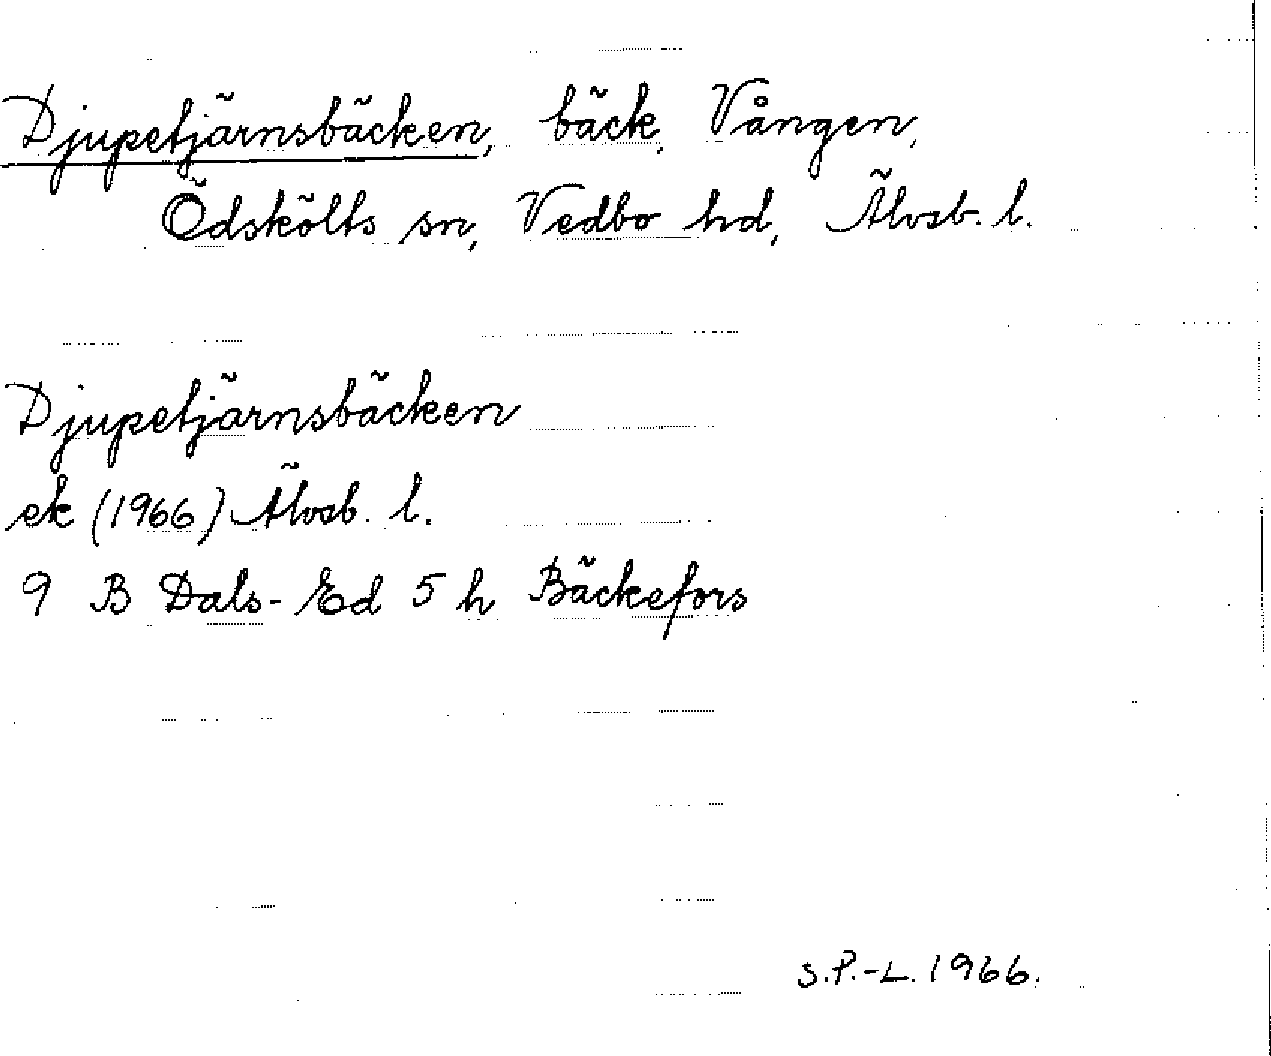 Djupetjärnsbäcken, bäck, Vången,
Ödskölts sn, Vedbo hd, Älvsb. l.
Djupetjärnsbäcken
ek (1966) Älvsb. l.
9 B Dals-Ed 5 h Bäckefors
S.P.-L. 1966.